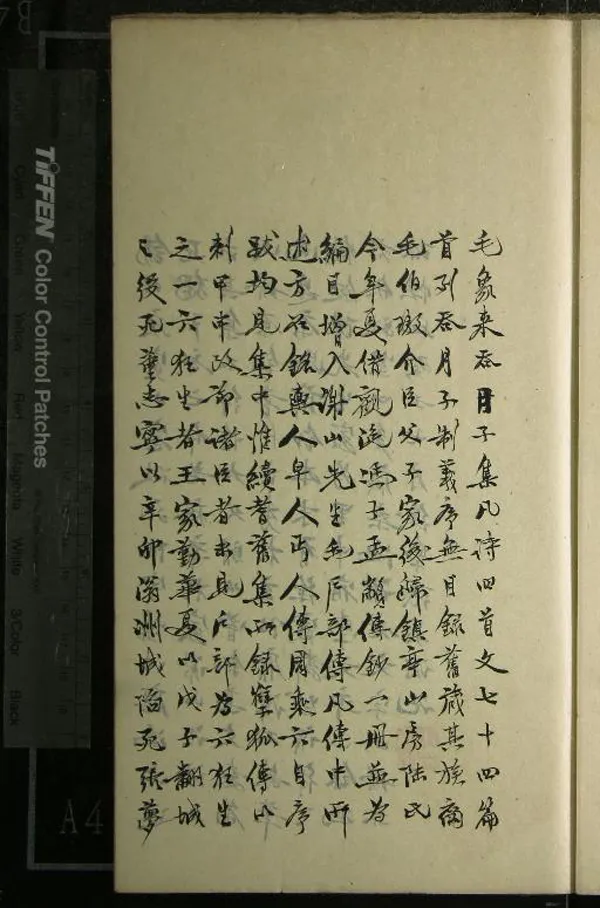 毛象来吞月子集凡诗四首文七十四篇
首列吞月子制義序無目錄舊藏其族裔
毛伯璈介臣父子家後歸鎮亭山房陸氏
今年夏借觀從馮子孟顓傳鈔一冊並为
編目增入謝山先生毛戶部傳凡傳中所
述方石銘輿人皁人丐人傳周乘六自序
跋均見集中惟續耆舊集所錄孽狐傳以
刺甲申改節諸臣者未見戶部为六狂生
之一六狂生者王家勤華夏以戊子翻城
之後死董志寧以辛卯滃洲城陷死張夢
TIFFEN Color Control Patches
Cyan
Yellow
Red
Magenta
White
3/Color
Black
A4
7B